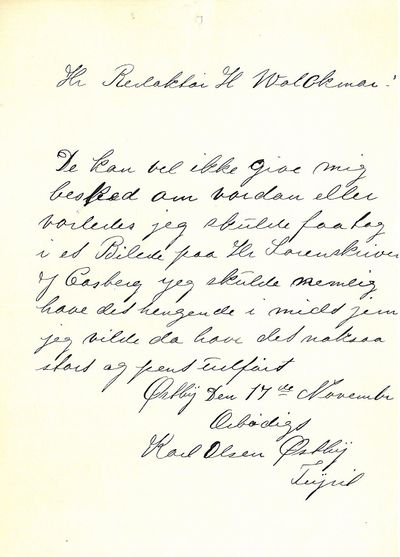 Hr Redaktør H Wolckmar!
De kan vel ikke give mig
besked om vordan eller
vorledes jeg skulde faa tag
i et Bilede paa Hr Sorenskriver
J Casberg jeg skulde nemlig
have det hengende i midt jem
jeg vilde da have det noksaa
stort og pent utført
Østby Den 17de Novembr
Ærbødigs
Karl Olsen Østby